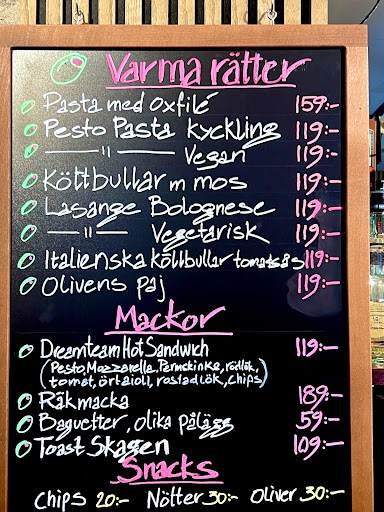 Varma rätter
Pasta med oxfilé 159:-
Pesto Pasta kyckling 119:-
—— 11 —— Vegan 119:-
Köttbullar m mos 119:-
Lasange Bolognese 119:-
—— 11 —— Vegetarisk 119:-
Italienska köttbullar tomatsås 119:-
Olivens paj 119:-
Mackor
Dreamteam Hot Sandwich 119:-
(Pesto, Mozzarella, Parmskinka, rödlök,
tomat, örtaioli, rostad lök, chips)
Räkmacka 189:-
Baguetter, olika pålägg 59:-
Toast Skagen 109:-
Snacks
Chips 20:- Nötter 30:- Oliver 30:-